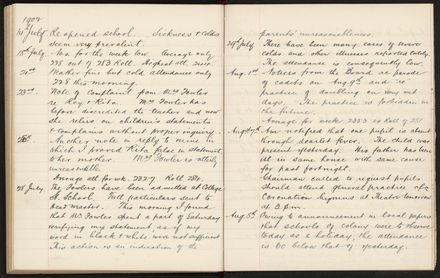 1902
14th July Re opened school. Sickness & colds
seem very prevalent.
18th July Av. for the week low. Average only
235 out of 283 Roll. Highest att.
21st Weather fine but cold attendance only
228 this morning.
23rd Note of Complaint from Mrs Fowler
re Roy & Rita. Mrs Fowler has
before discredited the teachers and now
she relies on children's statements
& complains without proper inquiry.
Another note in reply to mine in
which I proved Rita false in statement
to her mother. Mrs Fowler is utterly
unreasonable.
Average att. for wk. Roll 284.
28 July. The Fowlers have been admitted at College
St. School. Full particulars sent to
Head master. This morning I found
that Mr Fowler spent a part of Saturday
verifying my statement as if my
word in black & white was not sufficient
This action is an indication of the
parents' unreasonableness.
29th July There have been many cases of severe
colds and other illnesses reported lately.
The attendance is consequently low.
Aug. 1st Notices from the Board re parade
of cadets on Aug. 9th and re
practice of doubling on very wet
days. The practice is forbidden in
the future.
Average for week Roll of 281
Aug. Am notified that one pupil is absent
through scarlet fever. The child was
present yesterday. His father has been
ill in same house with same cause
for past fortnight.
Chairman called to request pupils
should attend general practice of
Coronation hymns at Theatre tomorrow
at 2 p.m.
Aug. 8th Owing to announcement in local papers
that schools of colony were to observe
today as a holiday, the attendance
is 60 below that of yesterday.